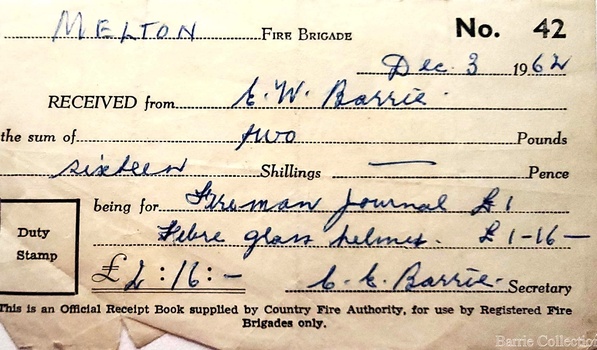 MELTON FIRE BRIGADE No. 42
Dec. 3 1962
RECEIVED from E. W. Barrie.
the sum of two Pounds
sixteen Shillings — Pence
being for Fireman Journal £1
Febre glass helmet. £1-16—
Duty Stamp
£2:16:- C. E. Barrie. Secretary
This is an Official Receipt Book supplied by Country Fire Authority, for use by Registered Fire
Brigades only.
Barrie Collection